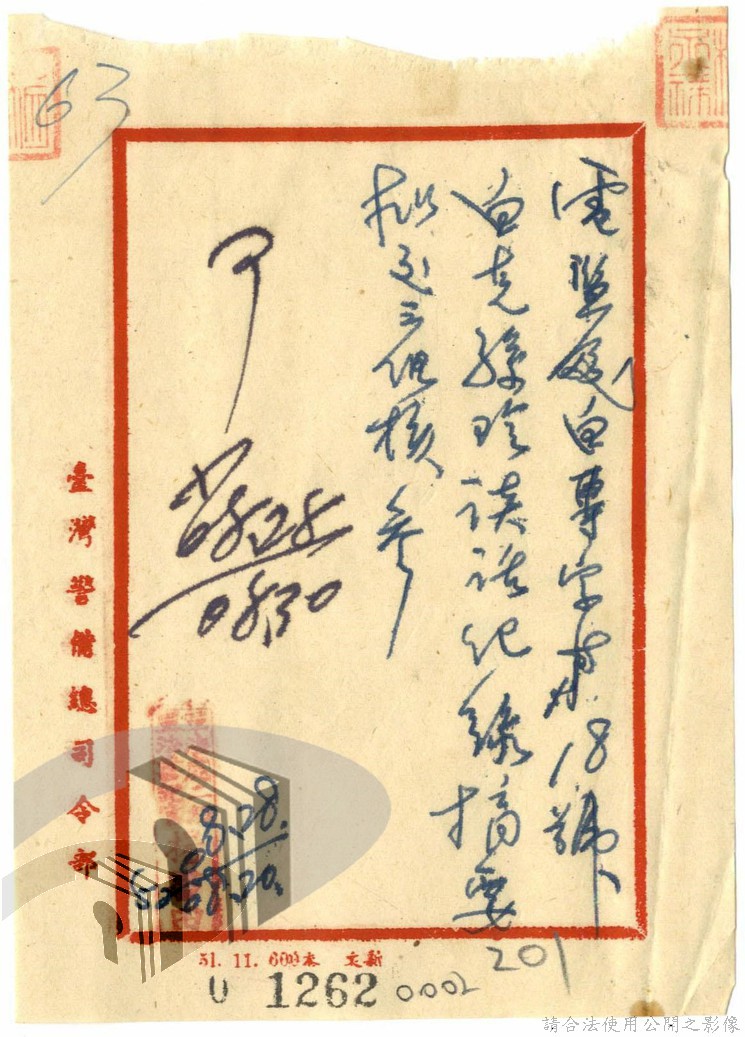 63
電監處白專字第18號、
白克孫玲談話紀錄摘要
擬送三組核參
可
0830
08.28.
臺灣警備總司令部
201
51. 11. 600本 文新
U 1262 0002
請合法使用公開之影像